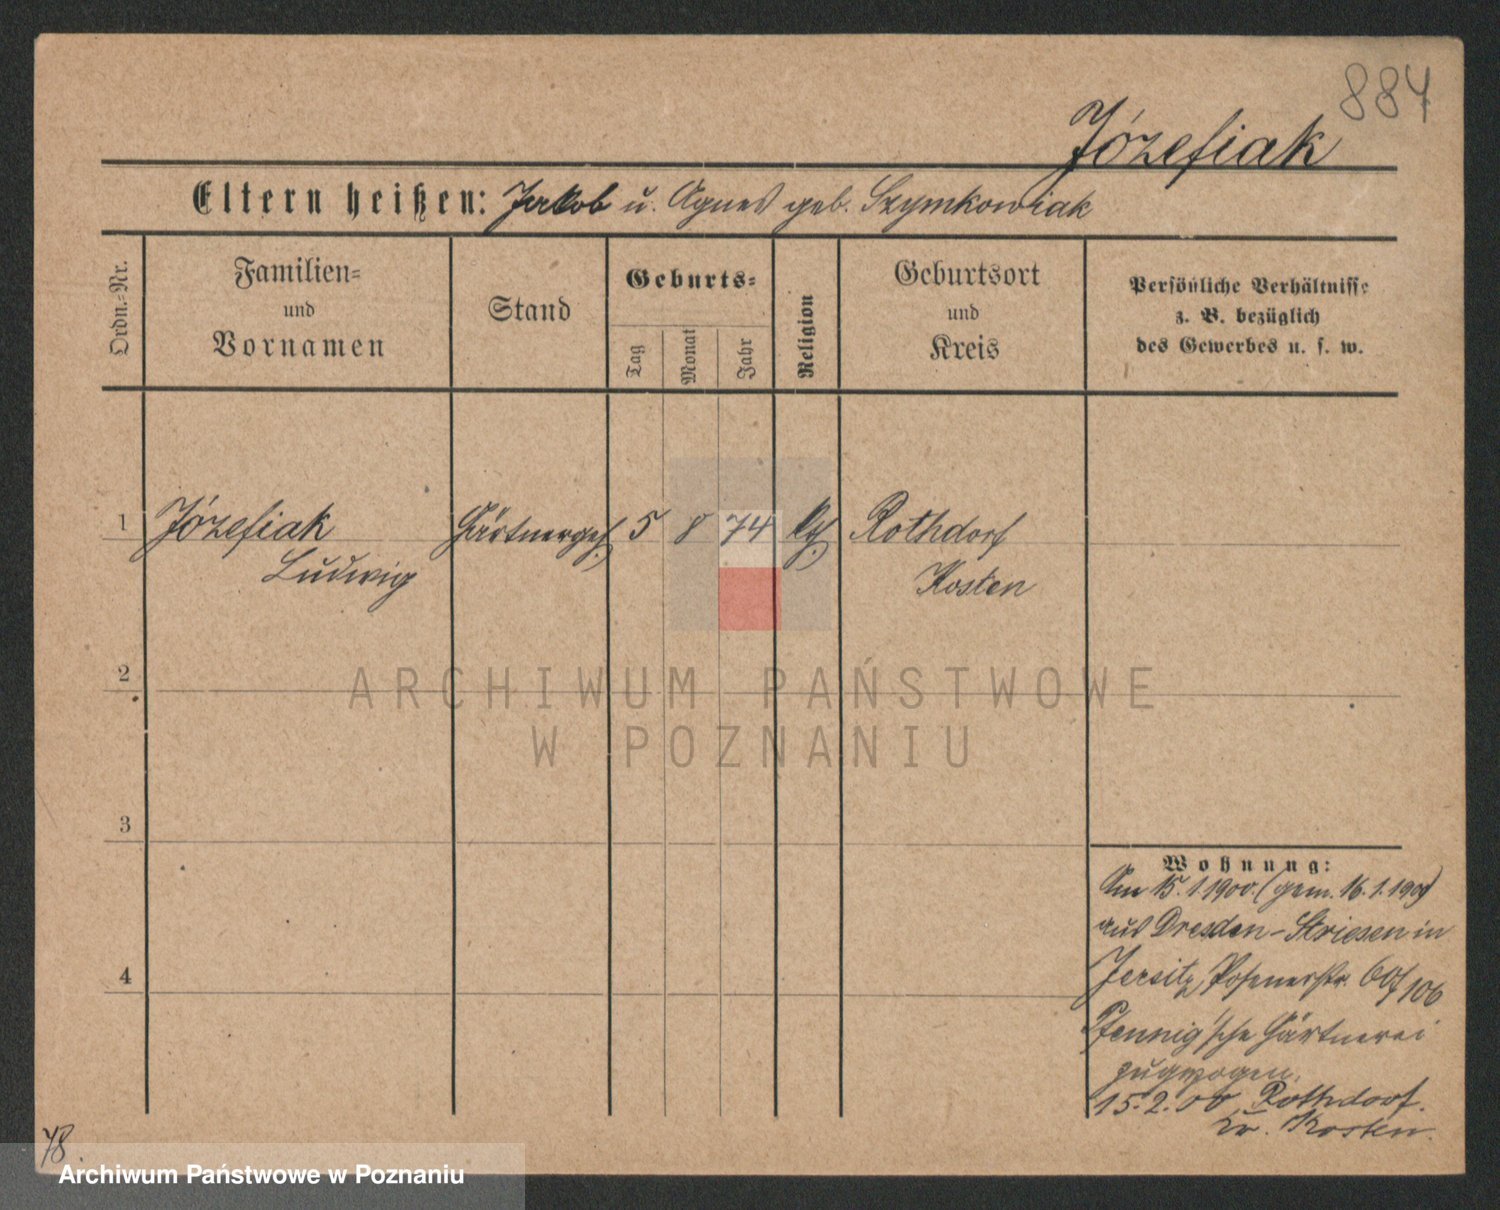 884
Józefiak
Eltern heißen: Jakob u. Agnes geb. Szymkowiak
Ordn.=Nr.
Familien=
und
Vornamen
Stand
Geburts=
Tag
Monat
Jahr
Religion
Geburtsort
und
Kreis
Persönliche Verhältnisse
z. B. bezüglich
des Gewerbes u. s. w.
1 Józefiak Gärtnergeh. 5 8 74 kg. Rothdorf
Ludwig Kosten
2
ARCHIWUM PAŃSTWOWE
W POZNANIU
3
4
Wohnung:
Am 15.1.1900. (gem. 16.1.1900)
aus Dresden-Striesen in
Jersitz, Posenerstr. 106
Pfennig'sche Gärtnerei
zugezogen.
15.2.00 Rothdorf.
Kr. Kosten.
78.
Archiwum Państwowe w Poznaniu